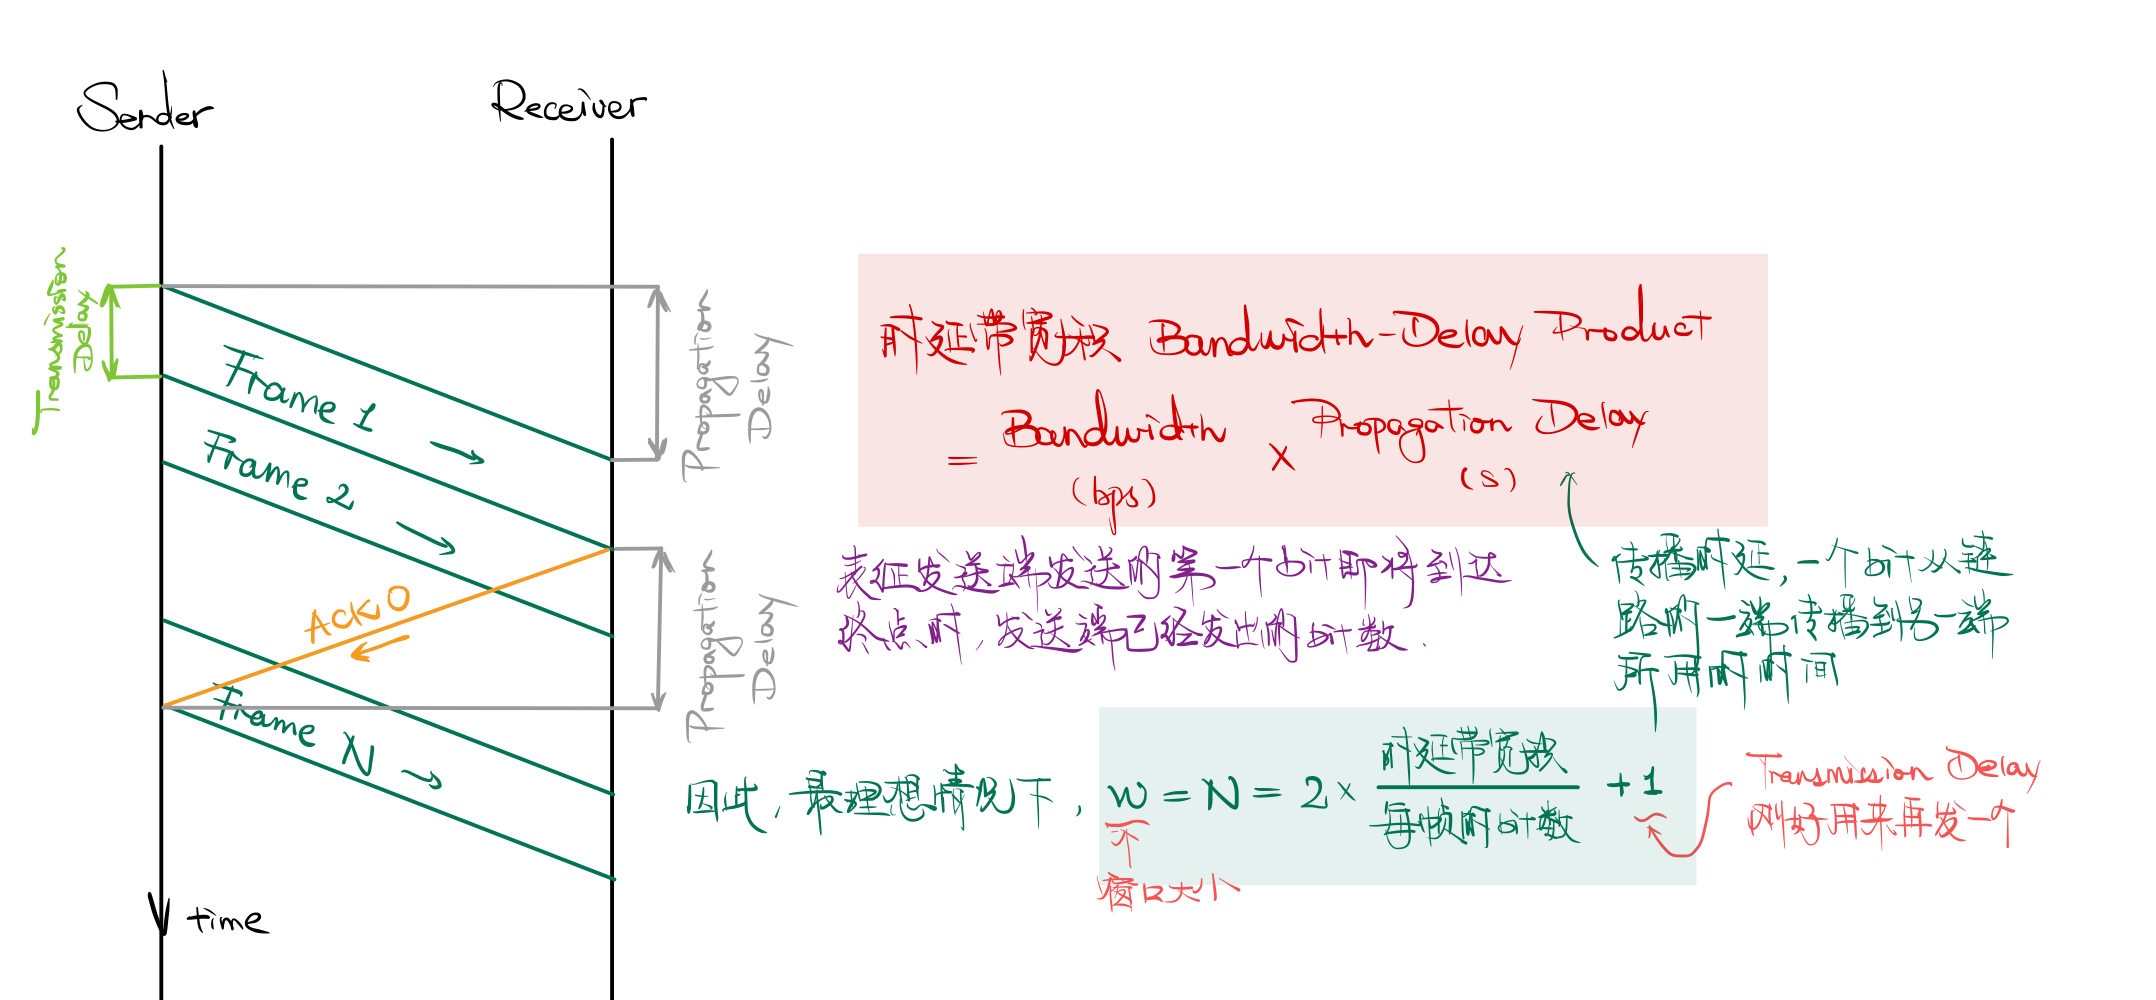 Sender
Receiver
Transmission
Delay
Frame 1
Frame 2
Ack 0
Frame N
time
Propagation
Delay
Propagation
Delay
时延带宽积 Bandwidth-Delay Product
= Bandwidth × Propagation Delay
(bps) (s)
表征发送端发送的第一个bit即将到达
终点时,发送端已经发出的bit数.
传播时延,一个bit从链
路的一端传播到另一端
所用的时间
因此,最理想情况下, w = N = 2 × 时延带宽积 / 每帧的bit数 + 1
窗口大小
Transmission Delay
刚好用来再发一个